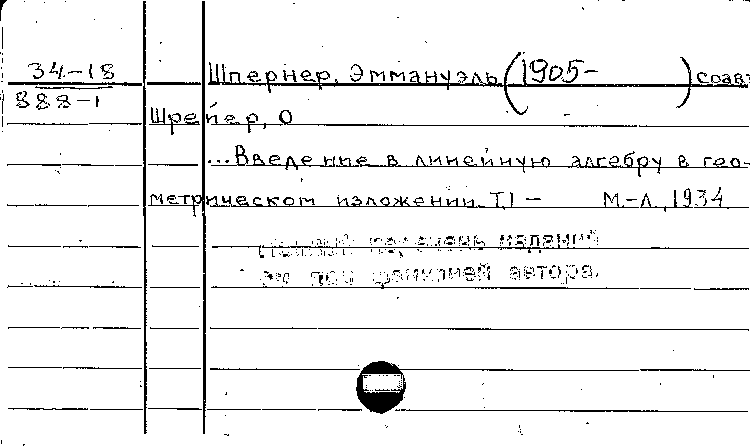 34-18 Шпернер, Эммануэль (1905- ) соавт
888-1
Шрейер, О
...Введение в линейную алгебру в гео-
метрическом изложении. Т.1 - М.-Л., 1934
Полный перечень изданий
см. под фамилией автора.